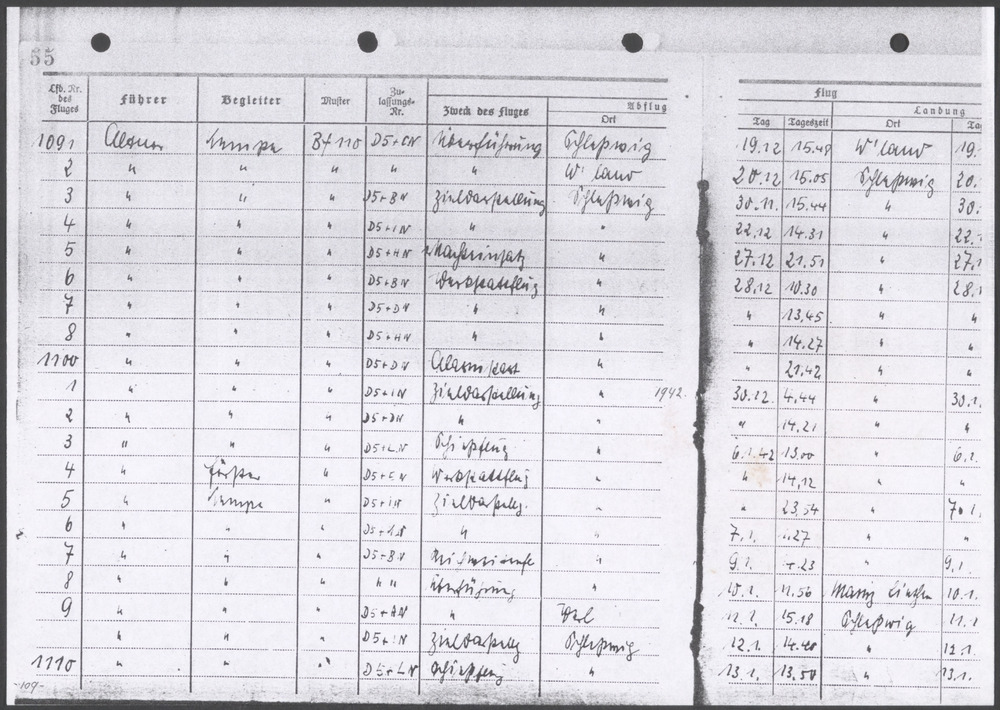 55
Lfd. Nr. des Fluges Führer Begleiter Muster Zu- lassungs- Nr. Zweck des Fluges Abflug Ort Flug Tag Tageszeit Landung Ort Ta
1091 Lempe Bf 110 D5+CN Überführung Schleßwig 19.12 15.48 W'land 19.
2 " " " " " W'land 20.12 15.05 Schleßwig 20.
3 " " " D5+BN Zieldarstellung Schleßwig 30.11. 15.44 " 30.
4 " " " D5+IN " " 22.12 14.31 " 22.
5 " " " D5+HN Nachteinsatz " 27.12 21.51 " 27.1
6 " " " D5+BN Werkstattflug " 28.12 10.30 " 28.1
7 " " " D5+DN " " " 13.45 " "
8 " " " D5+HN " " " 14.27 " "
1100 " " " D5+DN Alarmstart " " 21.42 " "
1 " " " D5+IN Zieldarstellung " 1942. 30.12. 4.44 " 30.1.
2 " " " D5+DN " " " 14.21 " "
3 " " " D5+LN Schießflug " 6.1.42 13.00 " 6.1.
4 " " Werkstattflug " " 14,12 " "
5 " Lempe " D5+IN Zieldarstellg. " " 23.54 " 7.1.
6 " " " " " 7.1. " "
7 " " " D5+BN " 9.1. " 9.1.
8 " " " " " Überführung " 10.1. 11.56 10.1.
9 " " " D5+AN " 15.18 Schleßwig 11.1
" " " Zieldarstellg Schleßwig 12.1. 14.40 " 12.1
1110 " " " D5+LN Schießflug " 13.1. 13.50 " 13.1.
-109-